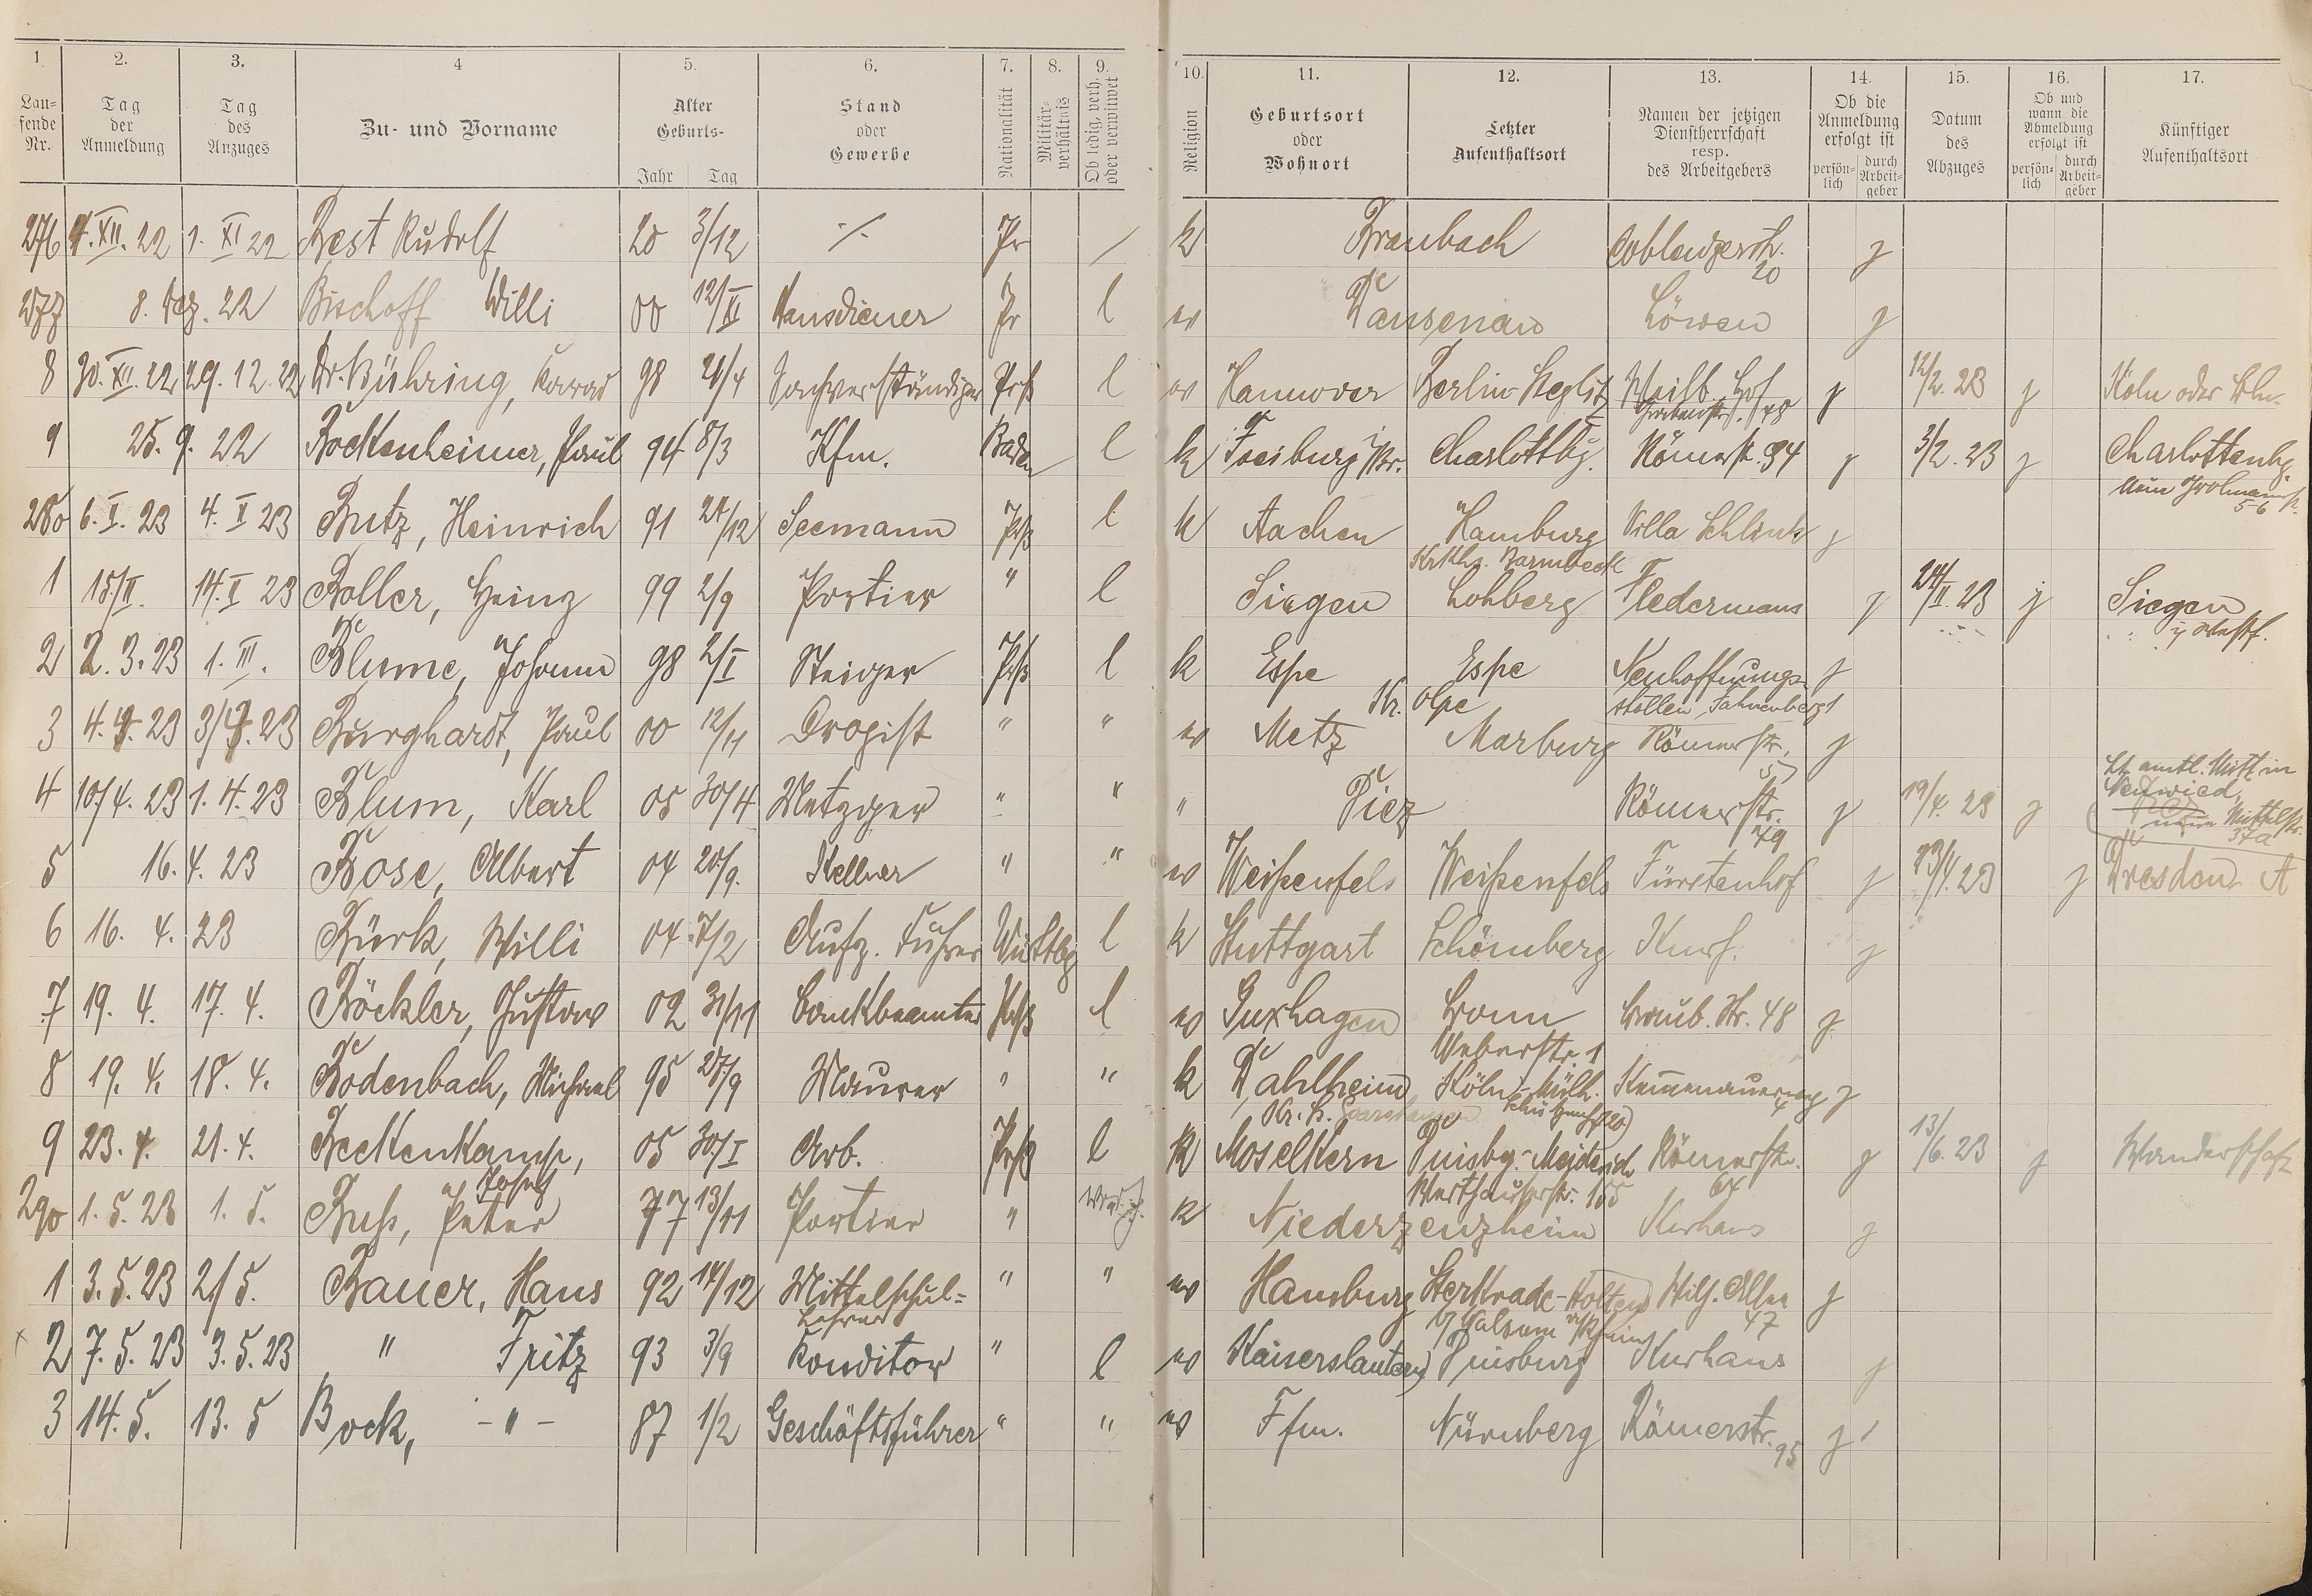 1. 2. 3. 4 5. 6. 7. 8. 9. 10. 11. 12. 13. 14. 15. 16. 17.
Lau-
fende
Nr.
Tag
der
Anmeldung
Tag
des
Anzuges
Zu- und Vorname
Alter
Geburts-
Jahr Tag
Stand
oder
Gewerbe
Nationalität
Militär-
verhältnis
Ob ledig, verh.
oder verwitwet
Religion
Geburtsort
oder
Wohnort
Letzter
Aufenthaltsort
Namen der jetzigen
Dienstherrschaft
resp.
des Arbeitgebers
Ob die
Anmeldung
erfolgt ist
persön-
lich
durch
Arbeit-
geber
Datum
des
Abzuges
Ob und
wann die
Abmeldung
erfolgt ist
persön-
lich
durch
Arbeit-
geber
Künftiger
Aufenthaltsort
276 4. XII. 22 1. XI 22 Best Rudolf 20 3/12 ./. Pr / k Braubach Coblenzerstr. j
20
277 8. Dez. 22 Bischoff Willi 00 12/XI Hausdiener Pr l ev Dausenau Löwen j
8 30. XII. 22 29. 12. 22 Dr. Bühring, 98 21/4 Sachverständiger Prß l ev Hannover Berlin-Steglitz Weilb. Hof j 12/2. 23 j Köln oder Bln.
9 25. 9. 22 Bodenheimer, Paul 94 8/3 Kfm. Baden l k Freiburg i/Br. Charlottbg. Römerstr. 94 j 3/2. 23 j Charlottenbg.
280 6. I. 23 4. I 23 Butz, Heinrich 91 24/12 Seemann Prß l k Aachen Hamburg Villa Schlink j
Krkhs. Barmbeck
1 15/II. 14. II 23 Boller, Heinz 99 2/9 Portier " l Siegen Lohberg Fledermaus j 24/II. 23 j Siegen
i/ Westf.
2 2. 3. 23 1. III. Blume, Johann 98 2/I Steiger Prß l k Espe Espe Neuhoffnungs- j
Kr. Olpe stollen, Fahnenberg 1
3 4. 4. 23 3/4. 23 Burghardt, Paul 00 12/11 Drogist " " ev Metz Marburg Römerstr. j
4 10/4. 23 1. 4. 23 Blum, Karl 05 30/4 Metzger " " " Diez Römerstr. j 19/4. 23 j Lt. amtl. Mitt. in
79 Neuwied,
Mittelstr.
37a
5 16. 4. 23 Bose, Albert 04 20/9. Kellner " " ev Weißenfels Weißenfels Fürstenhof j 23/4. 23 j Dresden A
6 16. 4. 23 Bürk, Willi 04 7/2 Aufz. Führer Württbg l k Stuttgart Schömberg Kurh. j
7 19. 4. 17. 4. Böckler, Gustav 02 31/11 Bankbeamter Prß l ev Guxhagen Bonn Braub. Str. 48 j
Weberstr. 1
8 19. 4. 18. 4. Bodenbach, Michael 95 28/9 Maurer " " k Dahlheim Köln-Mülh. Kemmenauerweg j
4
9 23. 4. 21. 4. Beckenkamp, 05 30/I Arb. Prß l k Moselkern Duisbg.-Meiderich Römerstr. j 13/6. 23 j Wanderschaft
Josef 64
290 1. 5. 23 1. 5. Buss, Peter 77 13/11 Portier " k Niederzeuzheim Kurhaus j
1 3. 5. 23 2/5. Bauer, Hans 92 14/12 Mittelschul- " " ev Hamburg Sterkrade-Holten Wilh. Allee j
Lehrer 47
2 7. 5. 23 3. 5. 23 " Fritz 93 3/9 Konditor " l ev Kaiserslautern Duisburg Kurhaus j
3 14. 5. 13. 5 Bock, -"- 87 1/2 Geschäftsführer " " ev Ffm. Nürnberg Römerstr. j
95